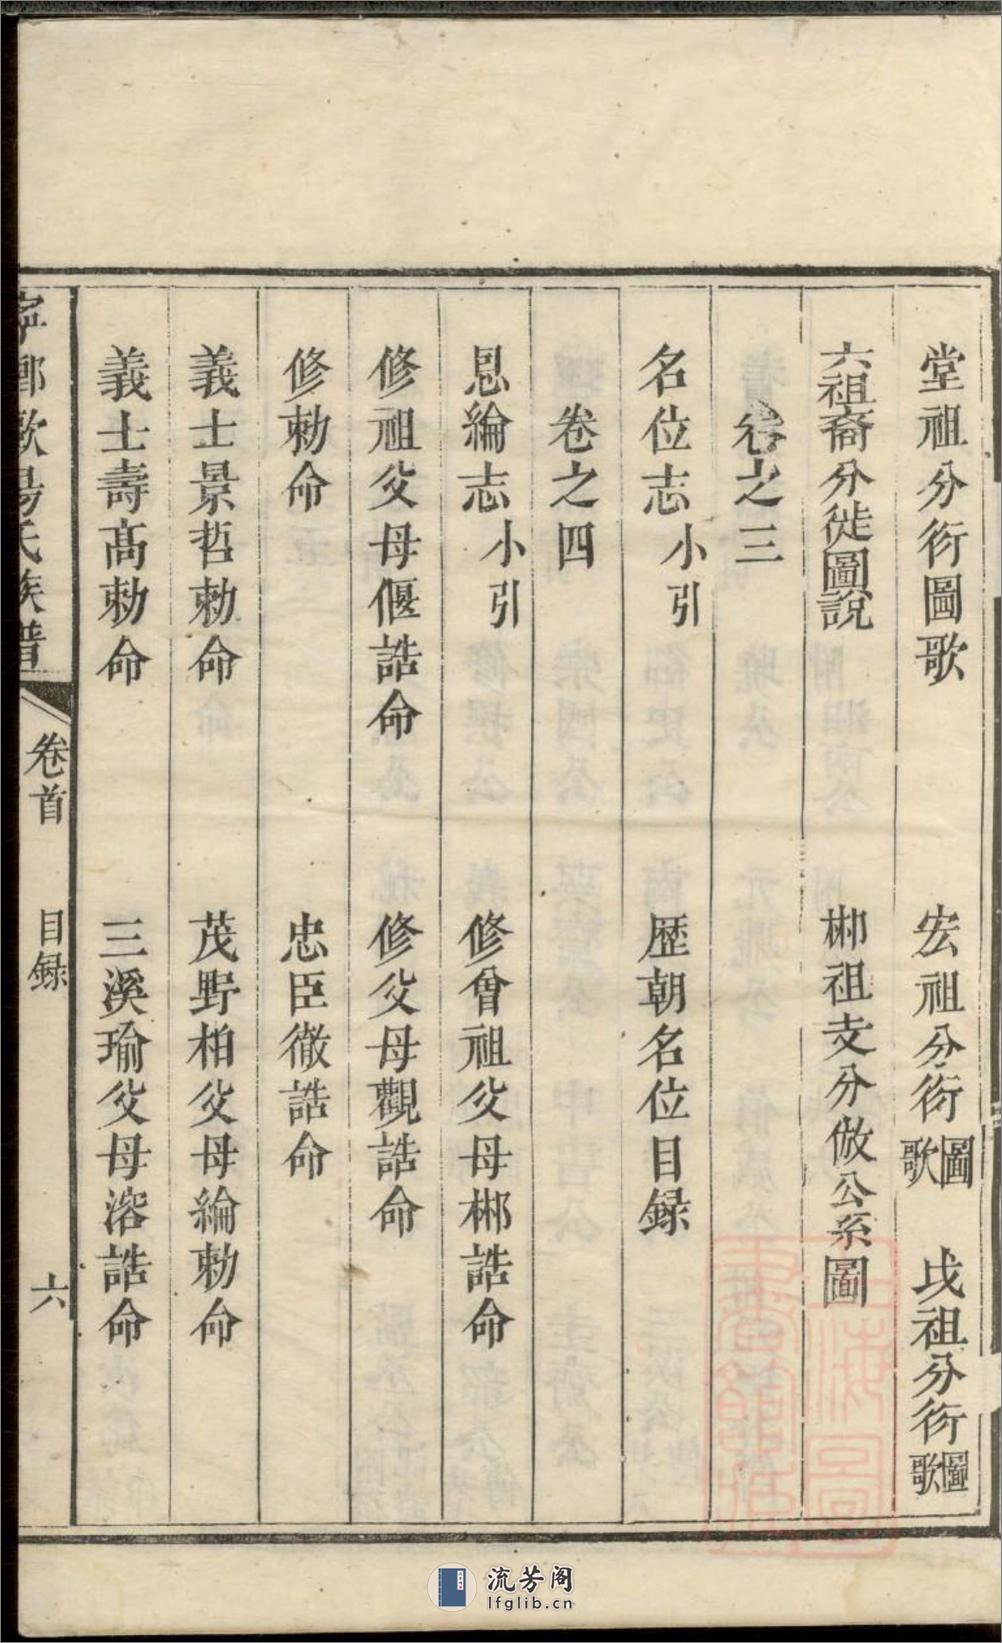 堂祖分衍圖歌 宏祖分衍圖歌 戉祖分衍圖歌
六祖裔分徙圖說 郴祖支分倣公系圖
卷之三
名位志小引 歷朝名位目録
卷之四
恩綸志小引 修曾祖父母郴誥命
修祖父母偃誥命 修父母觀誥命
修勅命 忠臣徹誥命
義士景哲勅命 茂野柏父母綸勅命
義士壽髙勅命 三溪瑜父母溶誥命
寧鄉歐陽氏族譜 卷首 目録 六
流芳阁
lfglib.cn